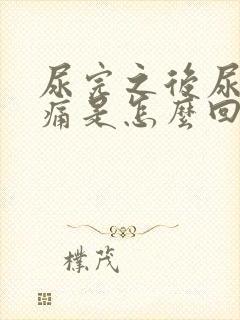 尿完之後尿
痛是怎麼回
樸茂